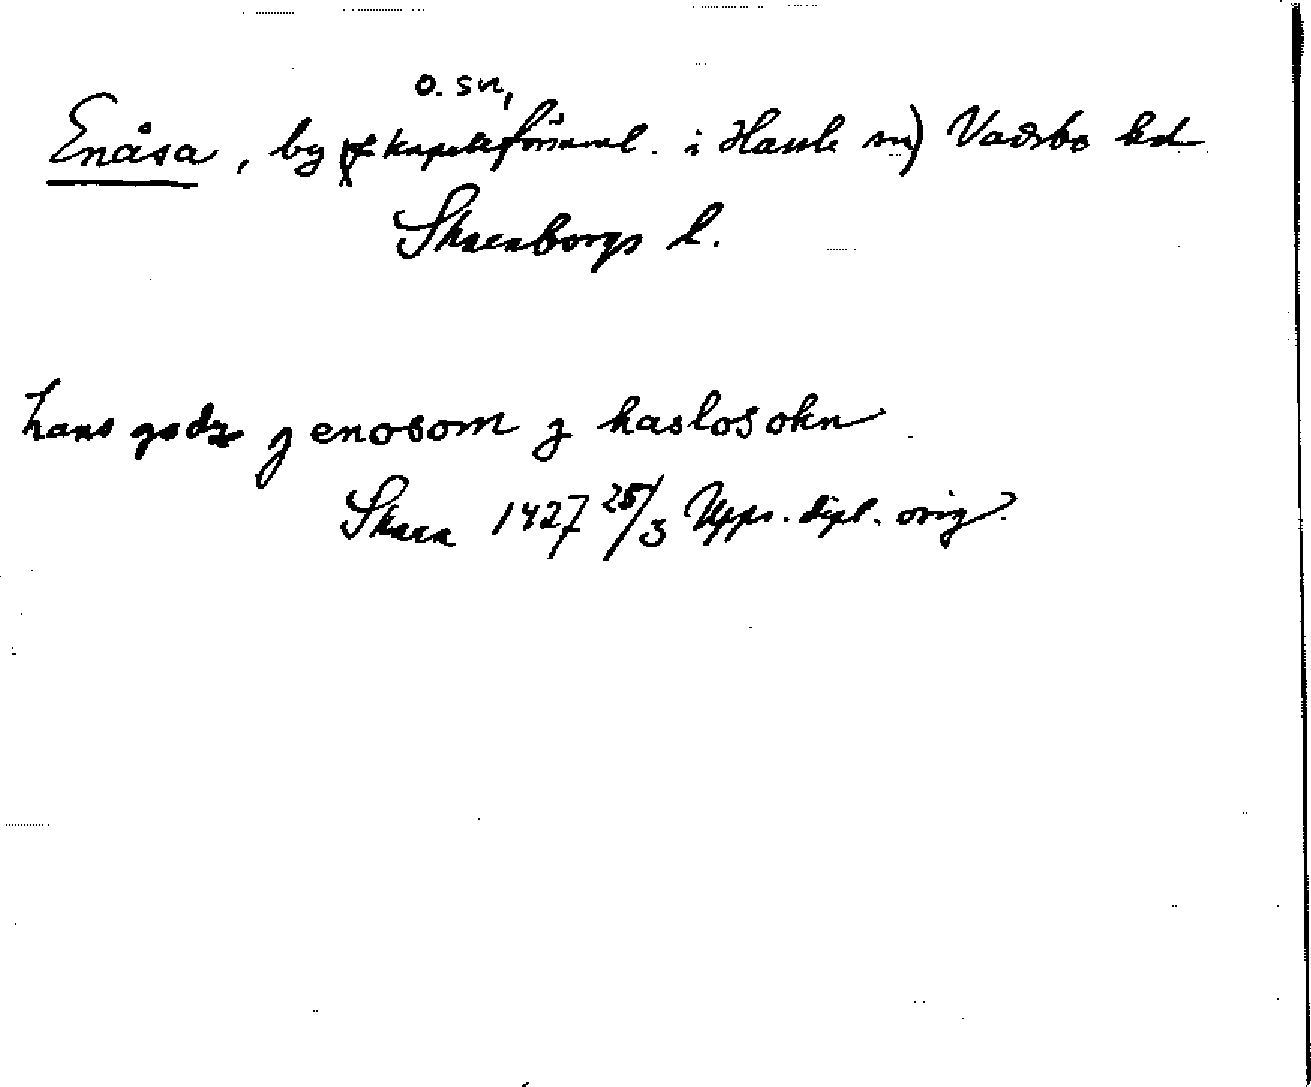 o. sn,
Enåsa, by ( kapell församl. i Hassle sn) Vadsbo hd
Skaraborgs l.
hans godz j enosom j haslosokn
Skara 1427 25/3 Upps. dipl. orig.